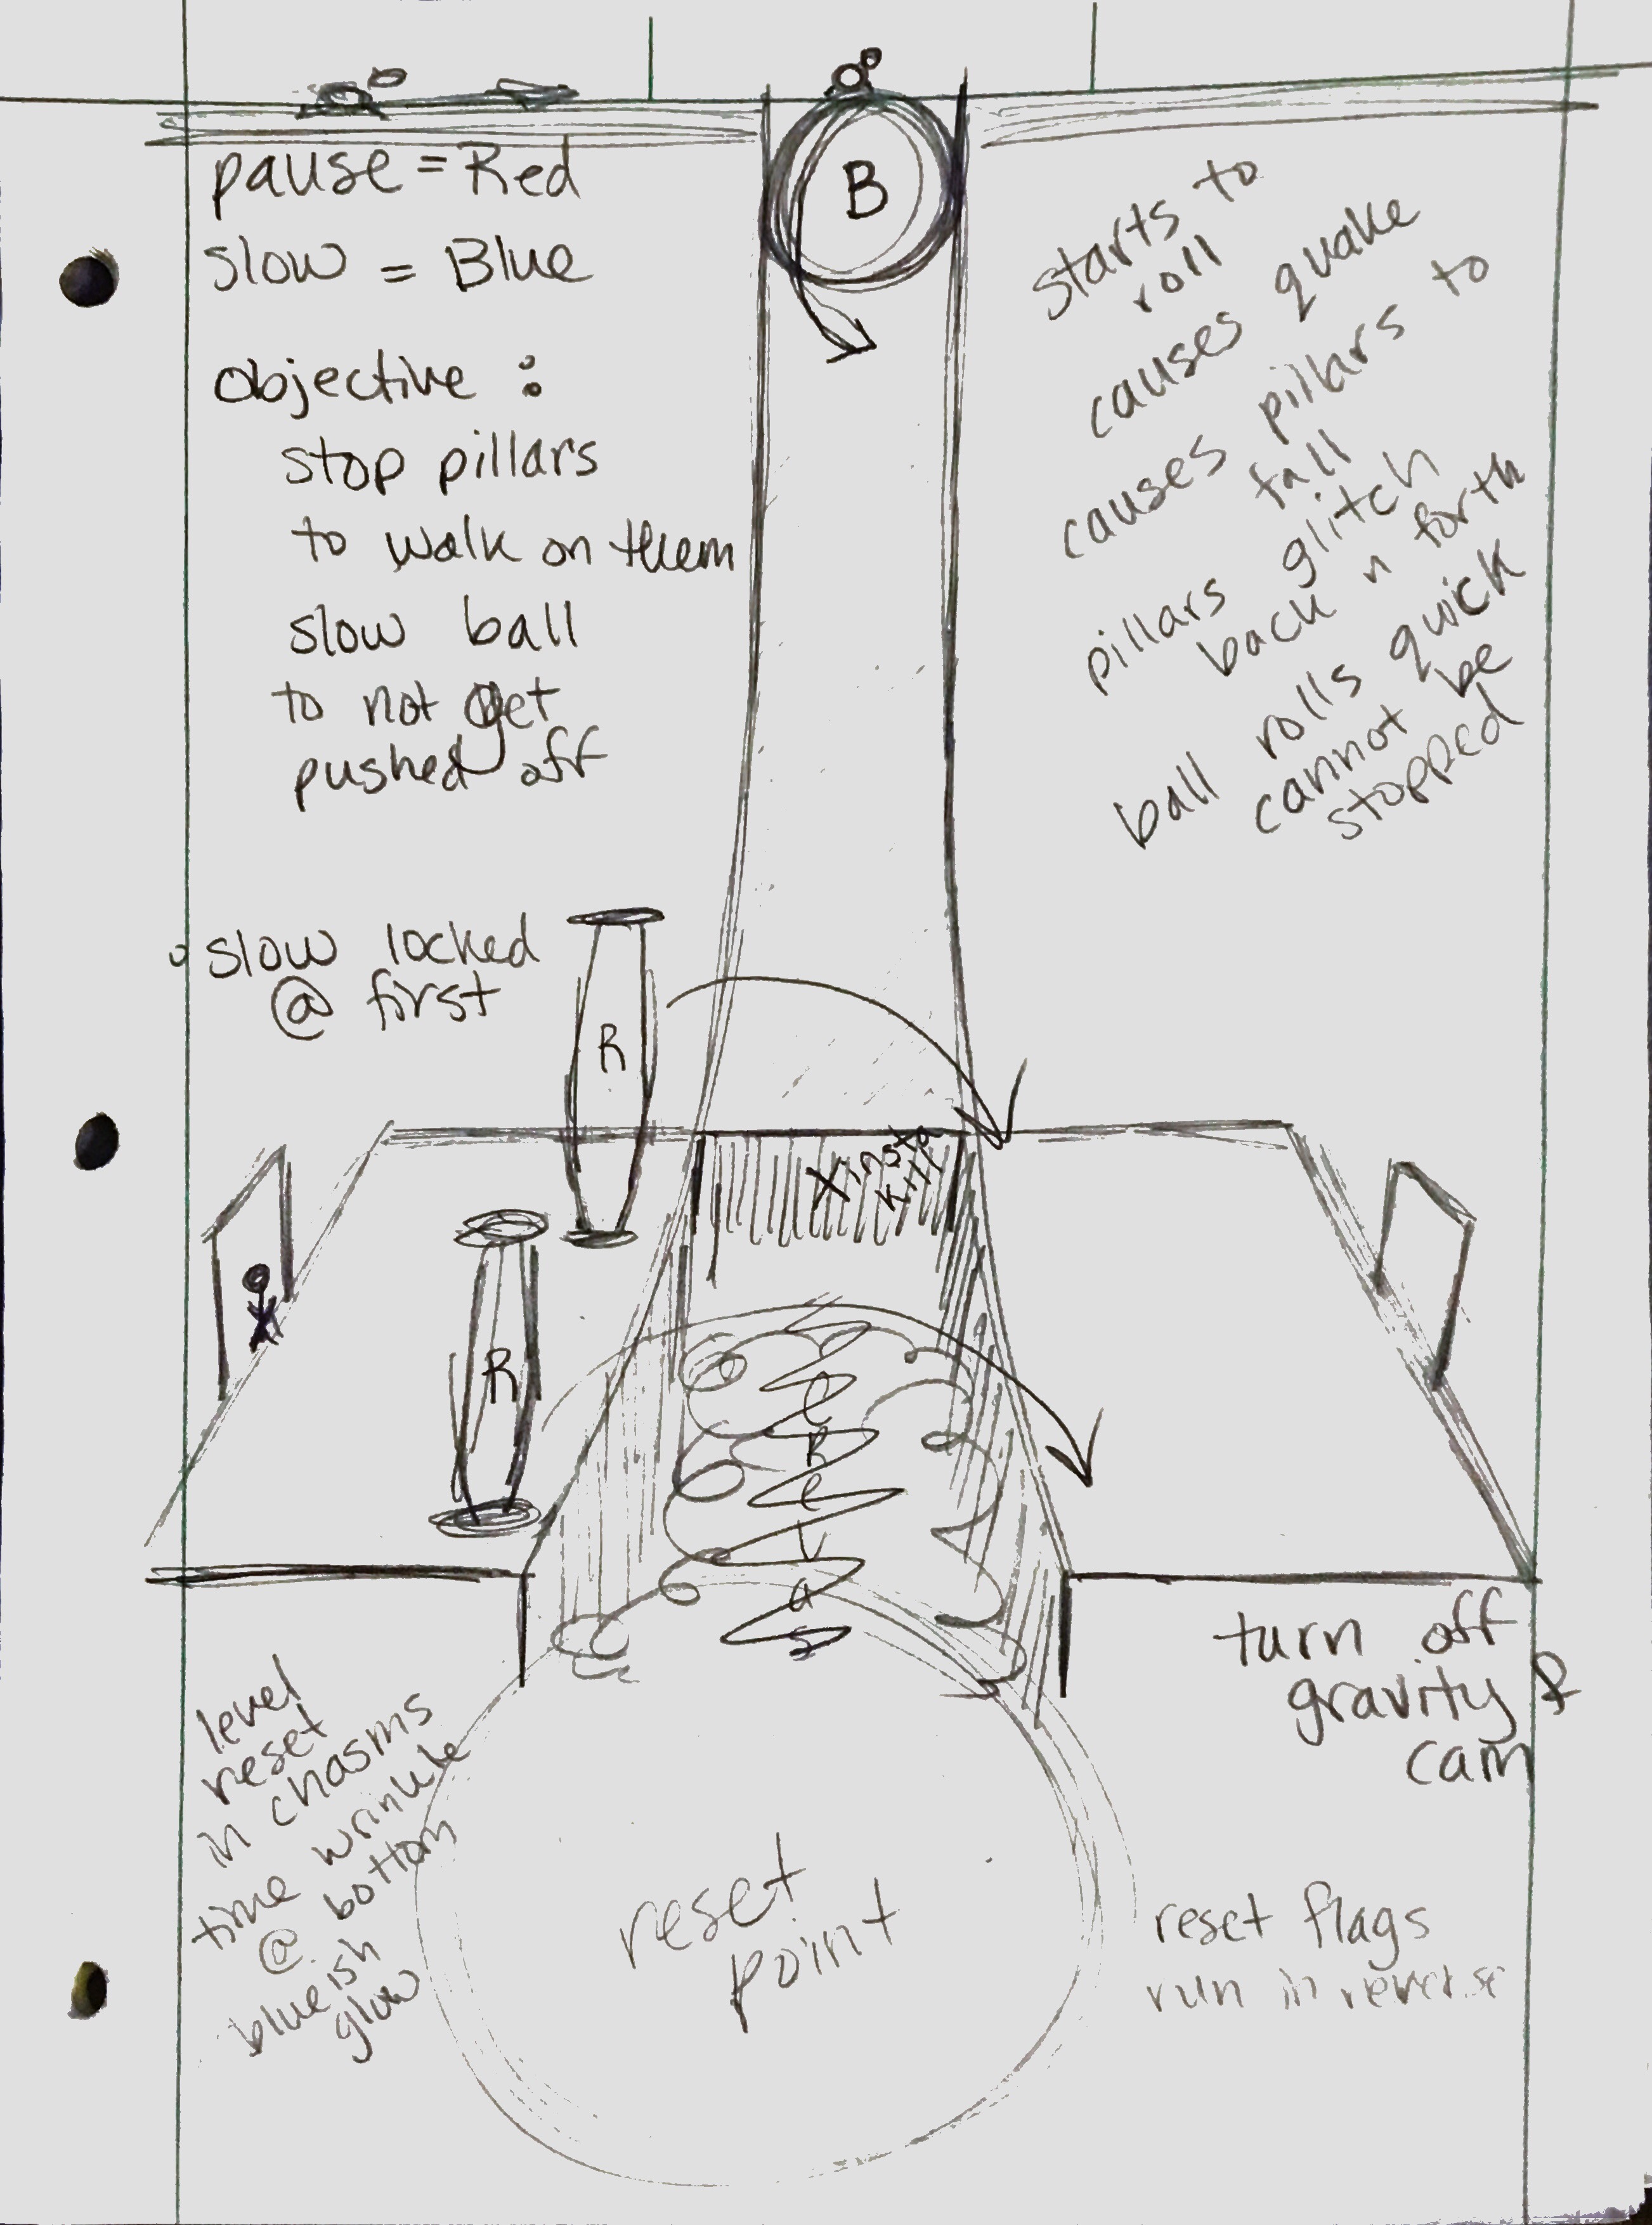 B
pause = Red
slow = Blue
objective :
stop pillars
to walk on them
slow ball
to not get
pushed off
starts to
roll
causes quake
causes pillars to
fall
pillars glitch
back n forth
ball rolls quick
cannot be
stopped
slow locked
@ first
R
X insta
kill
R
level
reset
in chasms
time wrinkle
@ bottom
blueish
glow
reset
point
turn off
gravity &
cam
reset flags
run in reverse